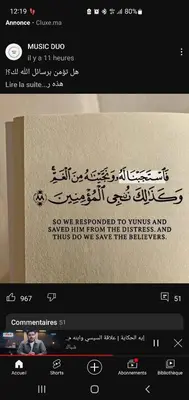 12:19
80%
Annonce · Cluxe.ma
MUSIC DUO
il y a 11 heures
هل تؤمن برسائل الله لك؟!
هذه ر...Lire la suite
فَاسْتَجَبْنَا لَهُ وَنَجَّيْنَاهُ مِنَ الْغَمِّ
وَكَذَٰلِكَ نُنجِي الْمُؤْمِنِينَ ٨٨
SO WE RESPONDED TO YUNUS AND
SAVED HIM FROM THE DISTRESS. AND
THUS DO WE SAVE THE BELIEVERS.
967
51
Commentaires 51
إيه الحكاية | علاقة السيسي وابنه م..
شباك
Accueil
Shorts
Abonnements
Bibliothèque